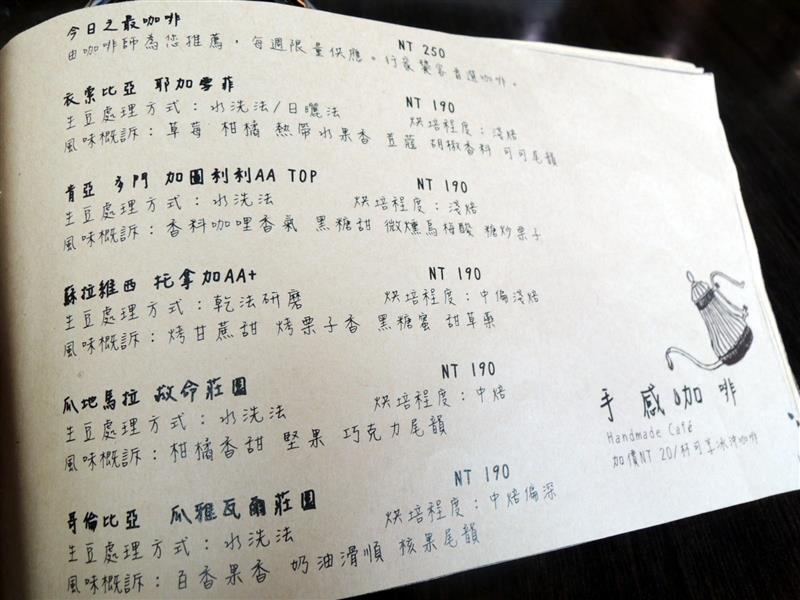 今日之最咖啡 NT 250
由咖啡師為您推薦，每週限量供應。行家饕客首選咖啡。
衣索比亞 耶加雪菲 NT 190
生豆處理方式：水洗法/日曬法 烘焙程度：淺焙
風味概訴：草莓 柑橘 熱帶水果香 荳蔻 胡椒香料 可可尾韻
肯亞 多門 加圖利利AA TOP NT 190
生豆處理方式：水洗法 烘焙程度：淺焙
風味概訴：香料咖哩香氣 黑糖甜 微燻烏梅酸 糖炒栗子
蘇拉維西 托拿加AA+ NT 190
生豆處理方式：乾法研磨 烘焙程度：中偏淺焙
風味概訴：烤甘蔗甜 烤栗子香 黑糖蜜 甜草藥
瓜地馬拉 救命莊園 NT 190
生豆處理方式：水洗法 烘焙程度：中焙
風味概訴：柑橘香甜 堅果 巧克力尾韻
哥倫比亞 瓜雅瓦爾莊園 NT 190
生豆處理方式：水洗法 烘焙程度：中焙偏深
風味概訴：百香果香 奶油滑順 核果尾韻
手感咖啡
Handmade Café
加價NT 20/杯可享冰沖咖啡